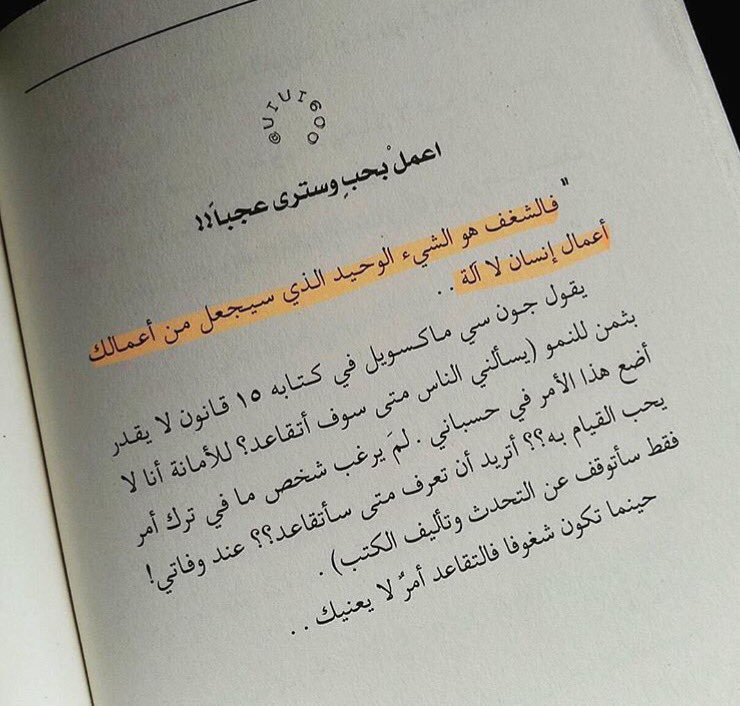 @UTUT9000
اعملْ بحبٍ وسترى عجباً!!
" فالشغف هو الشيء الوحيد الذي سيجعل من أعمالك
أعمال إنسان لا آلة ..
يقول جون سي ماكسويل في كتابه ١٥ قانون لا يقدر
بثمن للنمو (يسألني الناس متى سوف أتقاعد؟ للأمانة أنا لا
أضع هذا الأمر في حسباني . لمَ يرغب شخص ما في ترك أمر
يحب القيام به؟؟ أتريد أن تعرف متى سأتقاعد؟؟ عند وفاتي!
فقط سأتوقف عن التحدث وتأليف الكتب) .
حينما تكون شغوفا فالتقاعد أمرٌ لا يعنيك ..